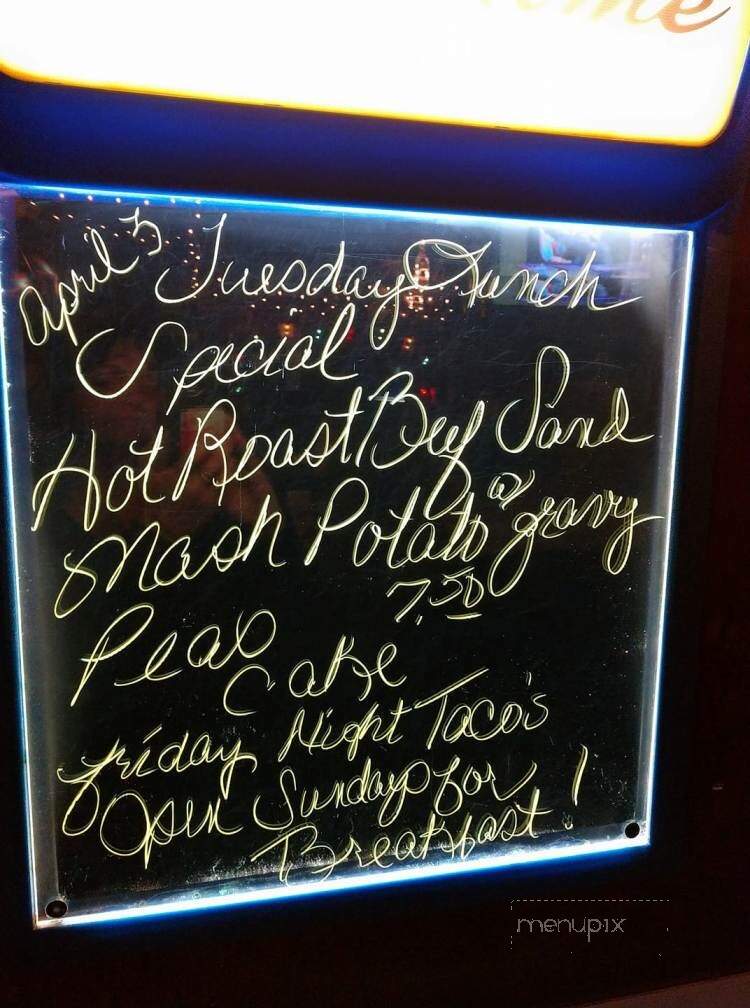 ome
April 3 Tuesday Lunch
Special
Hot Roast Beef Sand
Mash Potato w gravy
7.50
Peas
Cake
Friday Night Taco's
Open Sundays for
Breakfast!
menupix